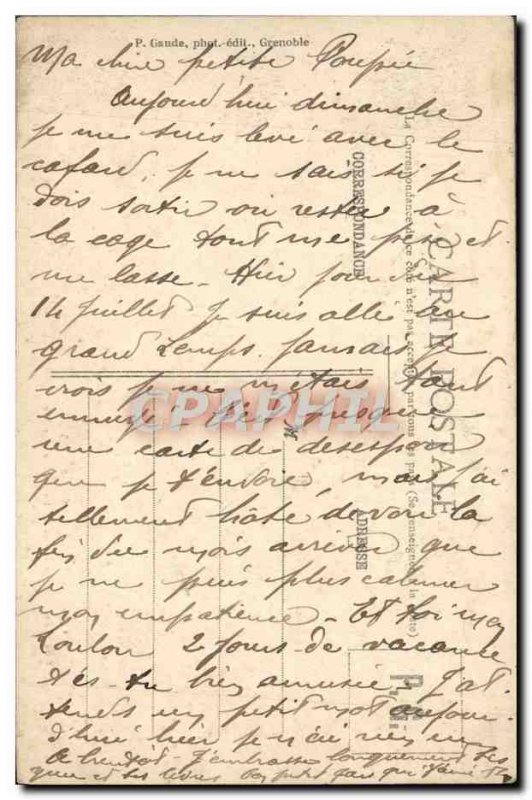 P. Gaude, phot.-édit., Grenoble
Ma chère petite Poupée
Aujourd'hui dimanche
je me suis levé avec le
cafard, je ne sais si je
dois sortir ou rester à
la cage tout me pèse et
me lasse. Hier jour du
14 juillet je suis allé au
grand Lemps. Jamais je
crois je ne m'étais tant
ennuyé. C'est presque
une carte de desespoir
que je t'envoie, mais j'ai
tellement hâte de voir la
fin du mois arriver que
je ne puis plus calmer
mon impatience. Et toi mon
Loulou 2 jours de vacance
t'es-tu bien amusée. J'at
tends un petit mot aujour
d'hui hier je n'ai rien eu
A bientôt. J'embrasse longuement tes
yeux et tes lèvres ton petit Jean qui t'aime
CARTE POSTALE
La Correspondance de ce côté n'est pas acceptée par tous les pays (Se renseigner à la Poste)
CORRESPONDANCE
ADRESSE
P. G.
CPAPHIL